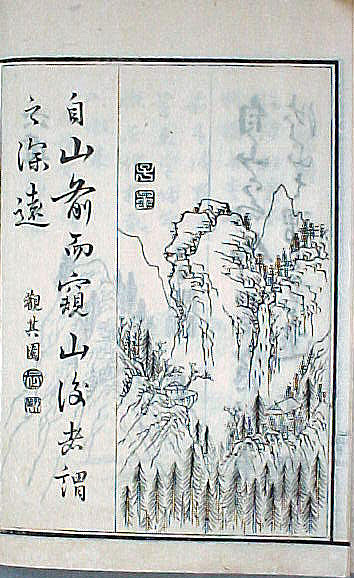 自山前而窺山後者謂
之深遠
觀其園